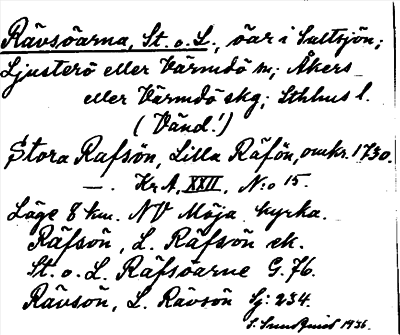 Rävsöarna, St. o. L., öar i Saltsjön;
Ljusterö eller Värmdö sn; Åkers
eller Värmdö skg; Sthlms l.
(Vänd!)
Stora Rafsön, Lilla Räfön, omkr. 1730.
—. Kr. A, XXII, N:o 15.
Läge 8 km. NV Möja kyrka.
Räfsön, L. Räfsön ek.
St. o. L. Räfsöarne G. 76.
Rävsön, L. Rävsön Sj: 234.
S. Sundquist 1936.